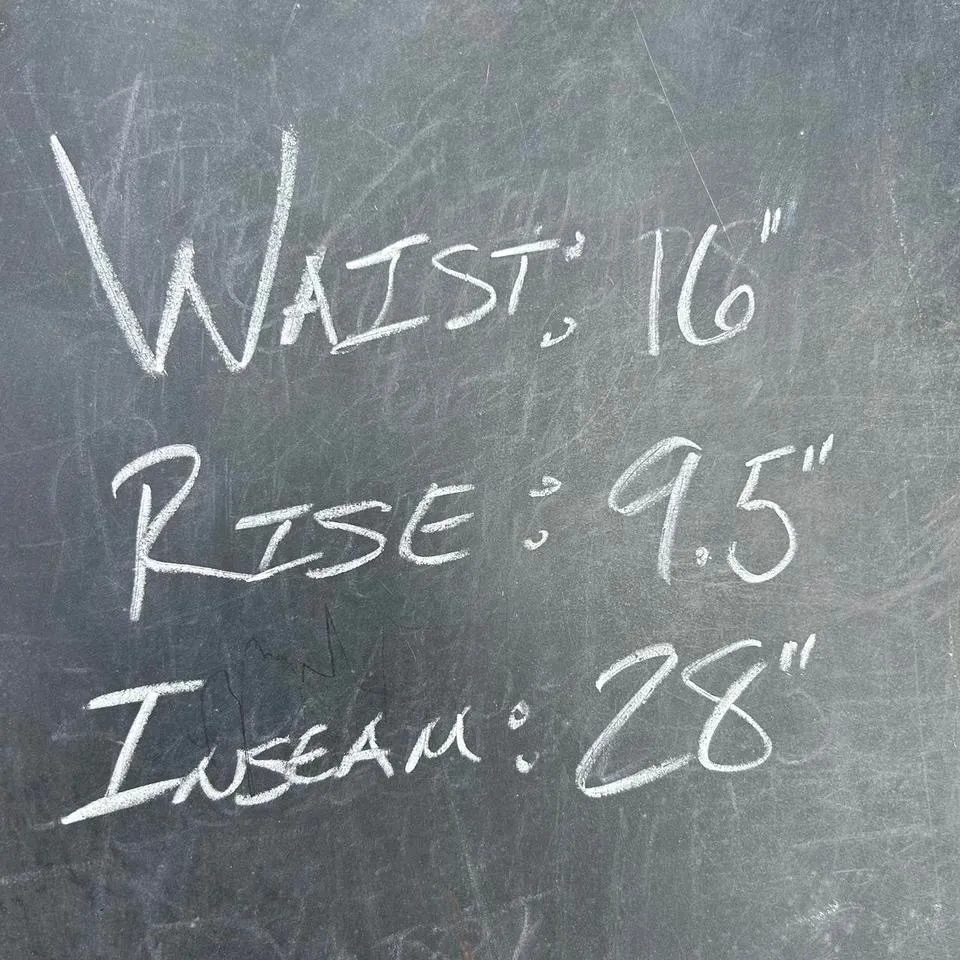 WAIST: 16"
RISE: 9.5"
INSEAM: 28"